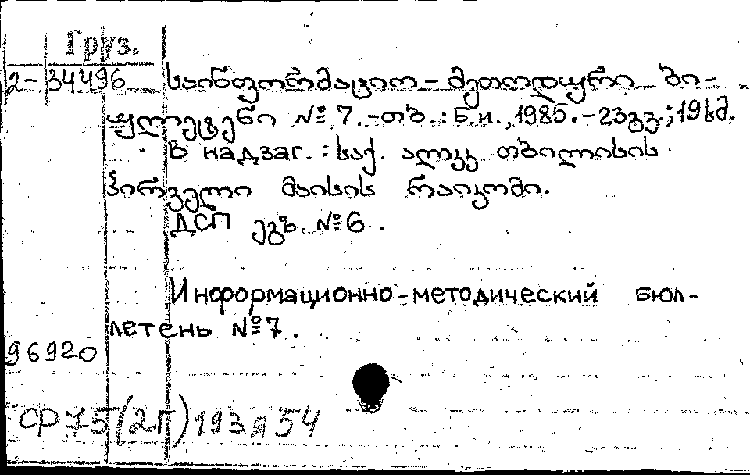 Груз.
2-34496 საინფორმაციო-მეთოდური ბი-
ულეტენი №7.-თბ.:Б.и.,1985.-23გვ.;19სმ.
В надзаг.:საქ. ალკკ თბილისის
პირველი მაისის რაიკომი.
ДСП ეგზ. №6.
Информационно-методический бюл-
летень №7.
96920
СФ 75(2Г)193я54